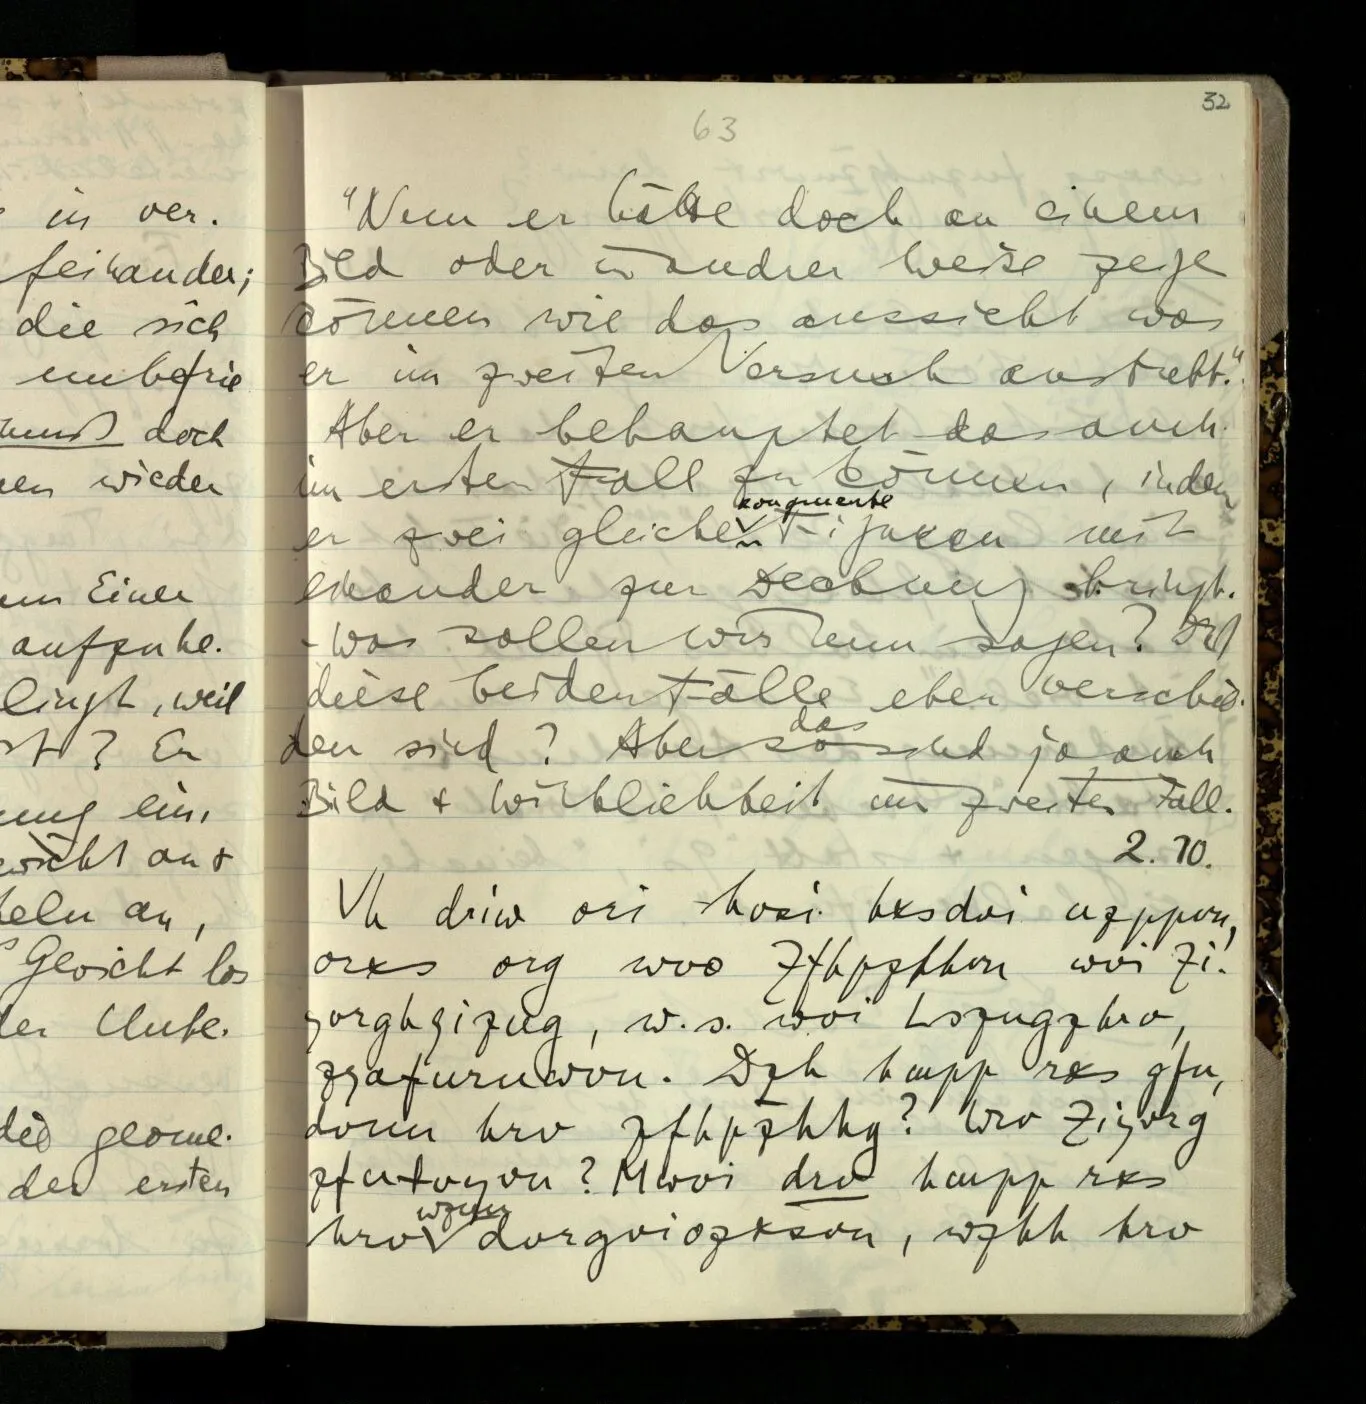 in ver.
feinander;
die sich
unbefrie
muß doch
en wieder
Einen
aufgabe.
lingt, weil
? Er
ung ein,
wicht an &
eln an,
Gewicht los
der Unbe.
geome.
der ersten
32
63
"Nun er hätte doch an einem
Bild oder in andrer Weise zeige
können wie das aussieht was
er im zweiten Versuch anstrebt."
Aber er behauptet das auch
im ersten Fall zu können, indem
kongruente
er zwei gleiche Figuren mit
einander zur Deckung bringt.
- Was sollen wir nun sagen? Daß
diese beiden Fälle eben verschie-
das
den sind? Aber so sind ja auch
Bild & Wirklichkeit im zweiten Fall.
2. 10.
Vh driw ori hvsi hxsdvi uzppvn,
orxs org wvo Zfhpzfhhvn wvi Zi.
yorghzizug, w.s. wvi Lszugzhrv,
zyafurnwvn. Dzh hmpp rxs gfn,
domn hrv zfhpzhhg? Wrv Ziyorg
zfutvyvn? Mwvi drv hmpp rxs
wzmn
hrv dvrgviozxsvn, wzhh hrv